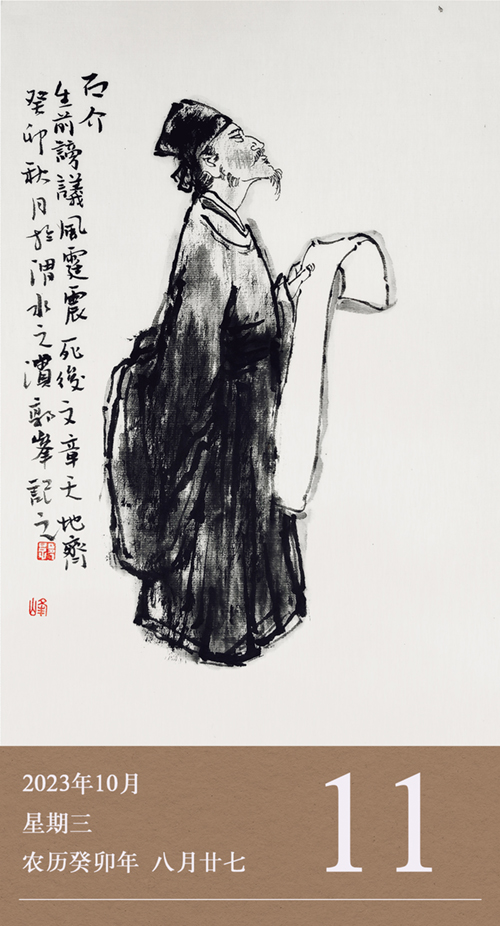 石介
生前謗議風霆震死後文章天地齊
癸卯秋月於渭水之濆郭峰記之
峰
2023年10月
星期三
农历癸卯年 八月廿七
11